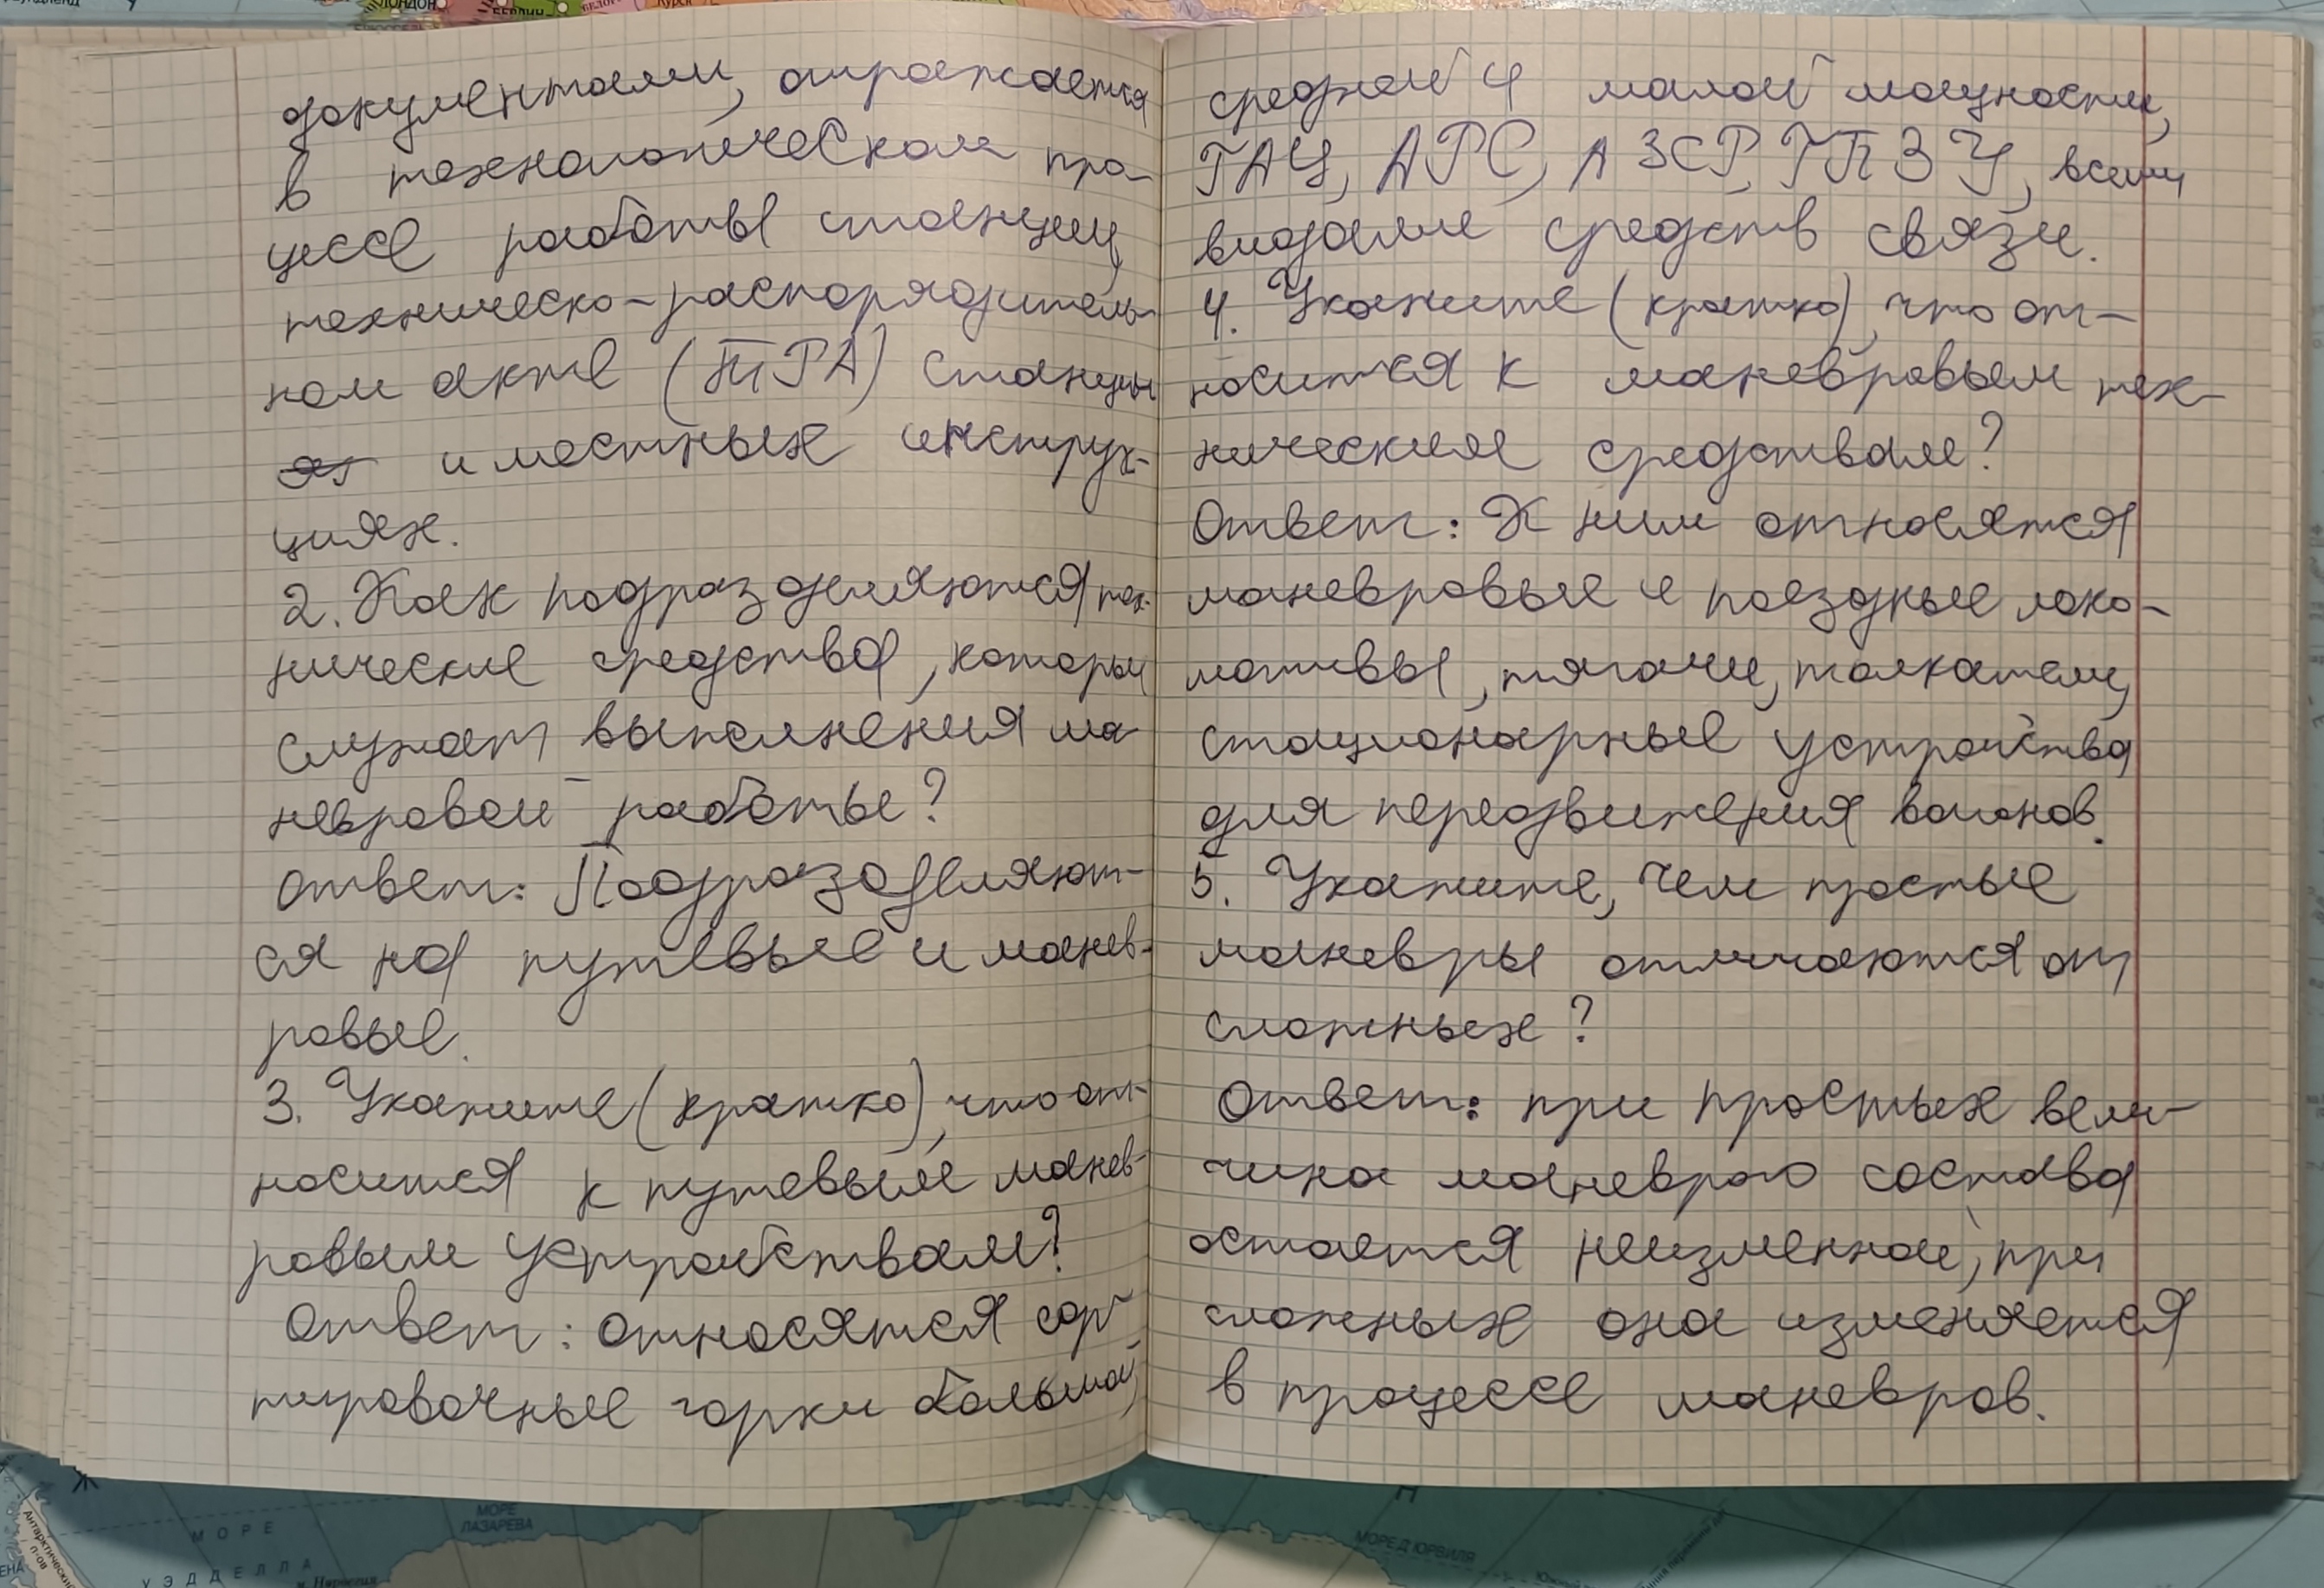 ЛОНДОН
БЕРЛИН
Курск
документами, отражается
в технологическом про-
цессе работы станции,
техническо-распорядитель-
ном акте (ТРА) станции
и местных инструк-
циях.
2. Как подразделяются тех-
нические средства, которые
служат выполнения ма-
невровой работы?
Ответ: Подразделяют-
ся на путевые и манев-
ровые.
3. Укажите (кратко), что от-
носится к путевым манев-
ровым устройствам?
Ответ: относятся сор-
тировочные горки большой,
средней и малой мощности,
ГАЦ, АРС, АЗСР, ГПЗУ, всеми
видами средств связи.
4. Укажите (кратко), что от-
носится к маневровым тех-
ническим средствам?
Ответ: К ним относятся
маневровые и поездные локо-
мотивы, тягачи, толкатели,
стационарные устройства
для передвижения вагонов.
5. Укажите, чем простые
маневры отличаются от
сложных?
Ответ: при простых вели-
чина маневрого состава
остается неизменной, при
сложных она изменяется
в процессе маневров.
МОРЕ
ЛАЗАРЕВА
МОРЕ
УЭДДЕЛЛА
МОРЕ Д'ЮРВИЛЯ